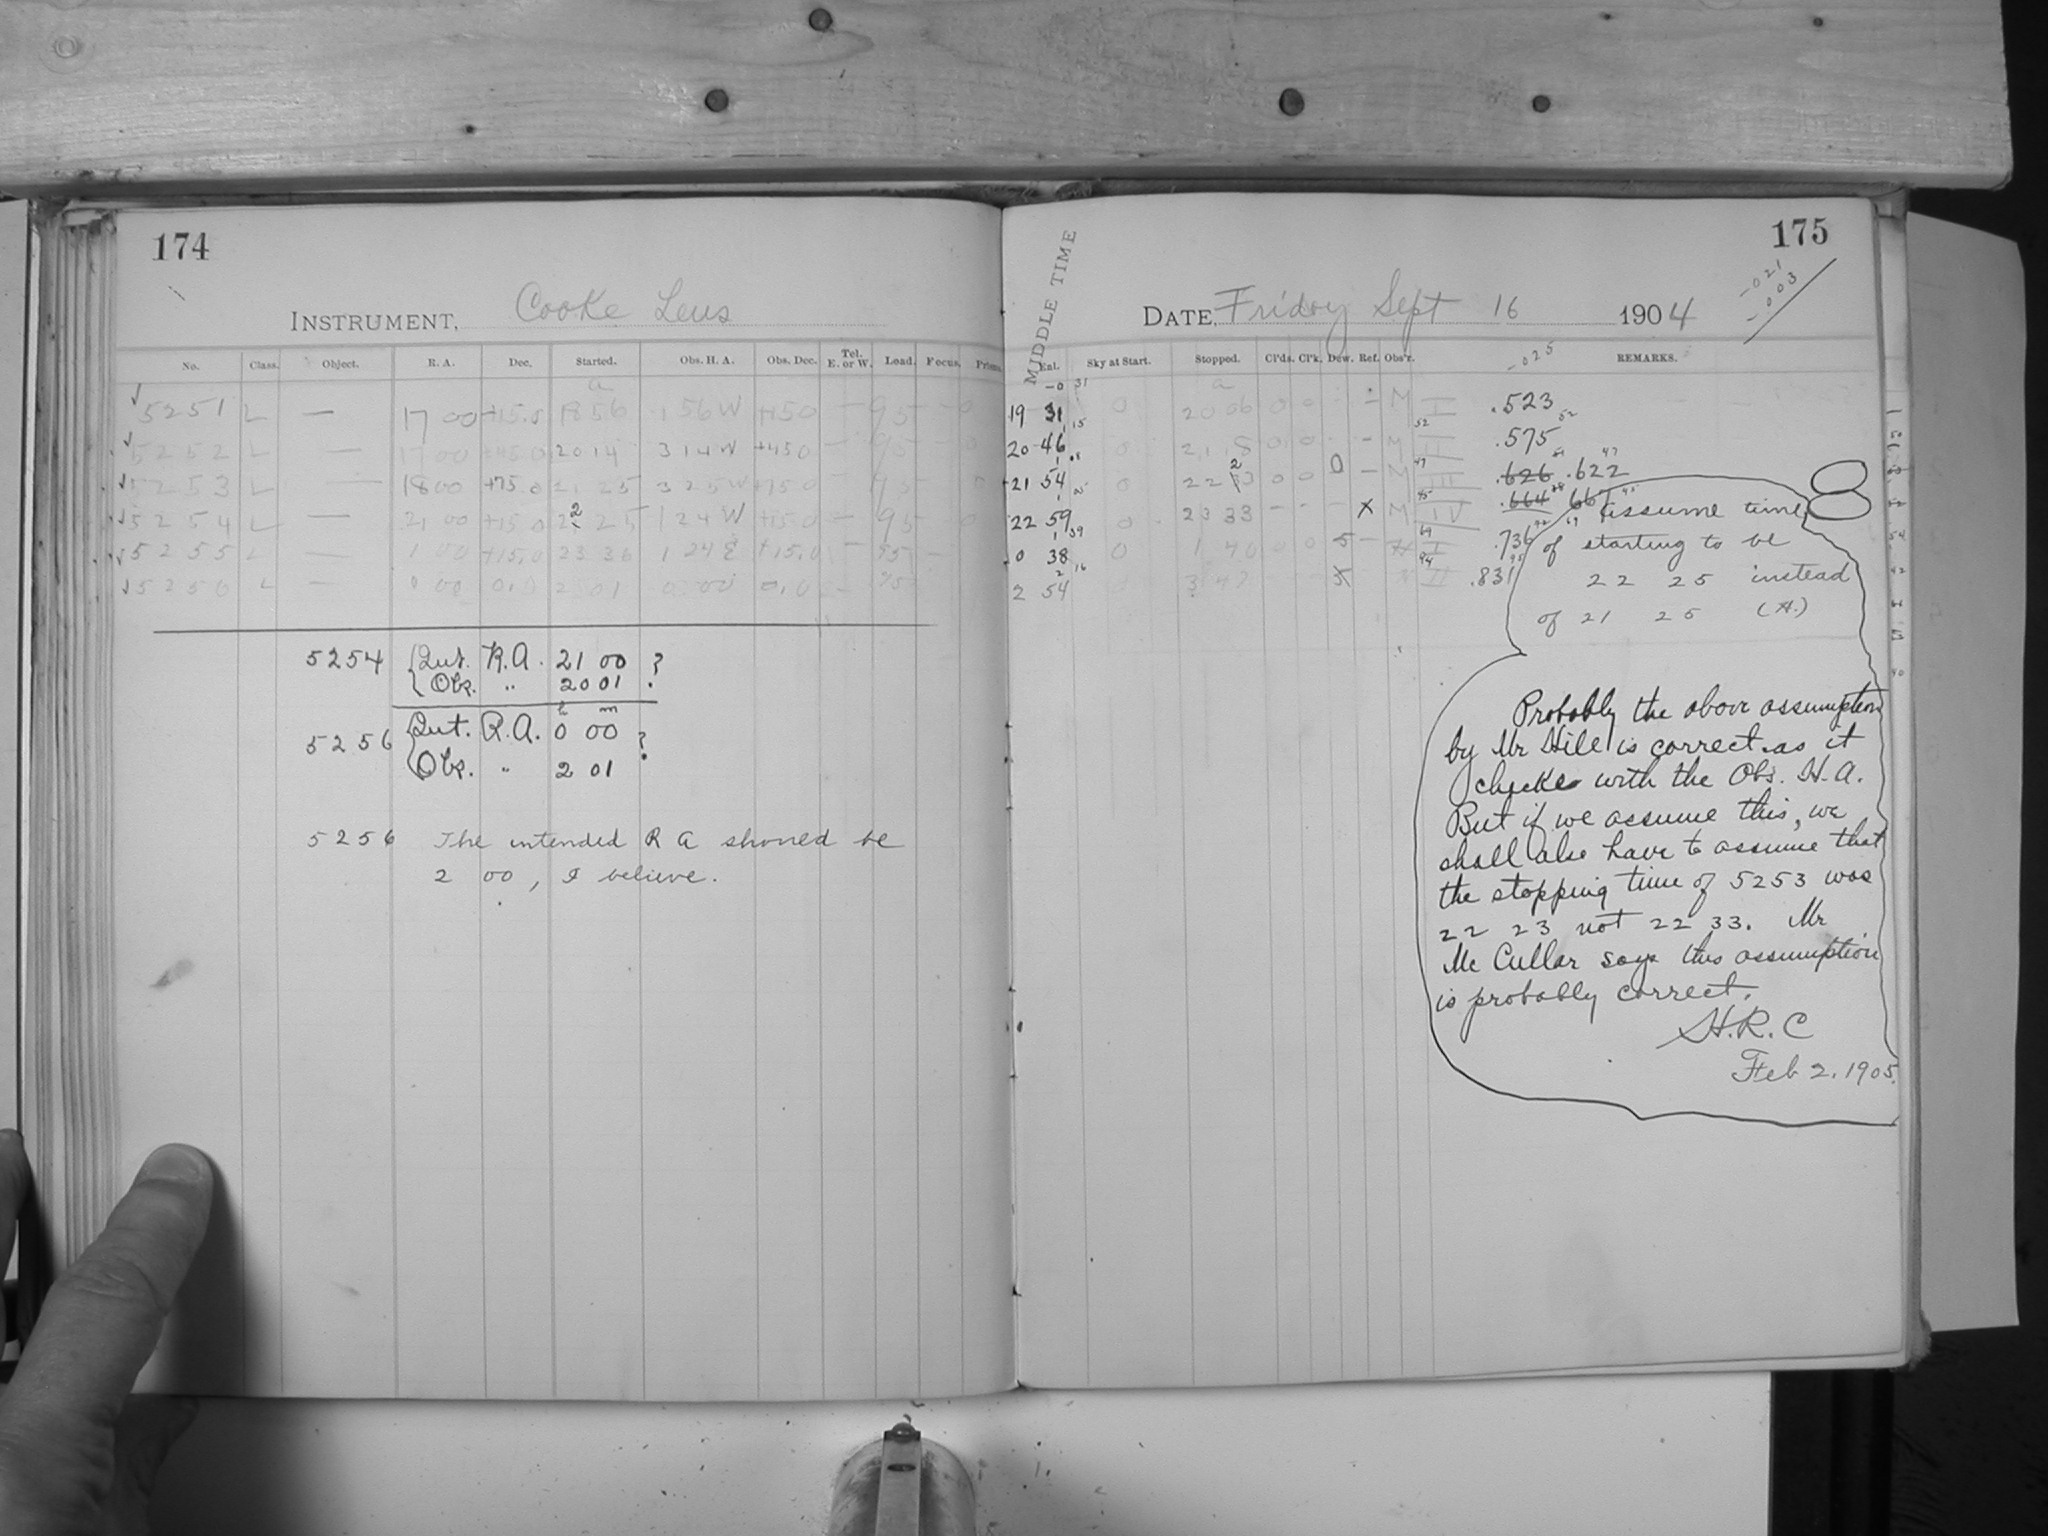 174
INSTRUMENT, Cooke Lens
No. Class. Object. R. A. Dec. Started. Obs. H. A. Obs. Dec. Tel. E. or W. Load. Focus. Prisms.
a
5251 L — 17 00 +15.0 18 56 1 56 W +15 0 — 95 — 0
5252 L — 17 00 +45.0 20 14 3 14 W +45 0 — 95 — 0
5253 L — 18 00 +75.0 21 25 3 25 W +75 0 95 0
5254 L — 21 00 +15.0 22 25 1 24 W +15.0 — 95 0
5255 L — 1 00 +15.0 23 36 1 24 E +15.0 — 95 —
5256 L — 0 00 0.0 2 01 0 00 0.0 — 95
5254 { Int. R.A. 21 00 ?
Obs. " 20 01
h m
5256 { Int. R.A. 0 00 ?
Obs. " 2 01
5256 The intended R A should be
2 00, I believe.
175
-021
-003
MIDDLE TIME
DATE, Friday Sept 16 1904
Ent. Sky at Start. Stopped. Cl'ds. Cl'k. Dew. Ref. Obs'r. REMARKS.
-025
19 31 0 20 06 0 0 — M I .523
20 46 0 21 18 0 0 — M II .575
21 54 0 22 23 0 0 0 — M III .626 .622
22 59 0 23 33 — — — X M IV .664 .667
0 38 0 1 40 0 0 5 — H I .736
2 54 0 3 47 M II .831
Assume time
of starting to be
22 25 instead
of 21 25 (H.)
Probably the above assumption
by Mr Hill is correct as it
checks with the Obs. H. A.
But if we assume this, we
shall also have to assume that
the stopping time of 5253 was
22 23 not 22 33. Mr
Mc Cullar says this assumption
is probably correct.
H.R.C
Feb 2. 1905.